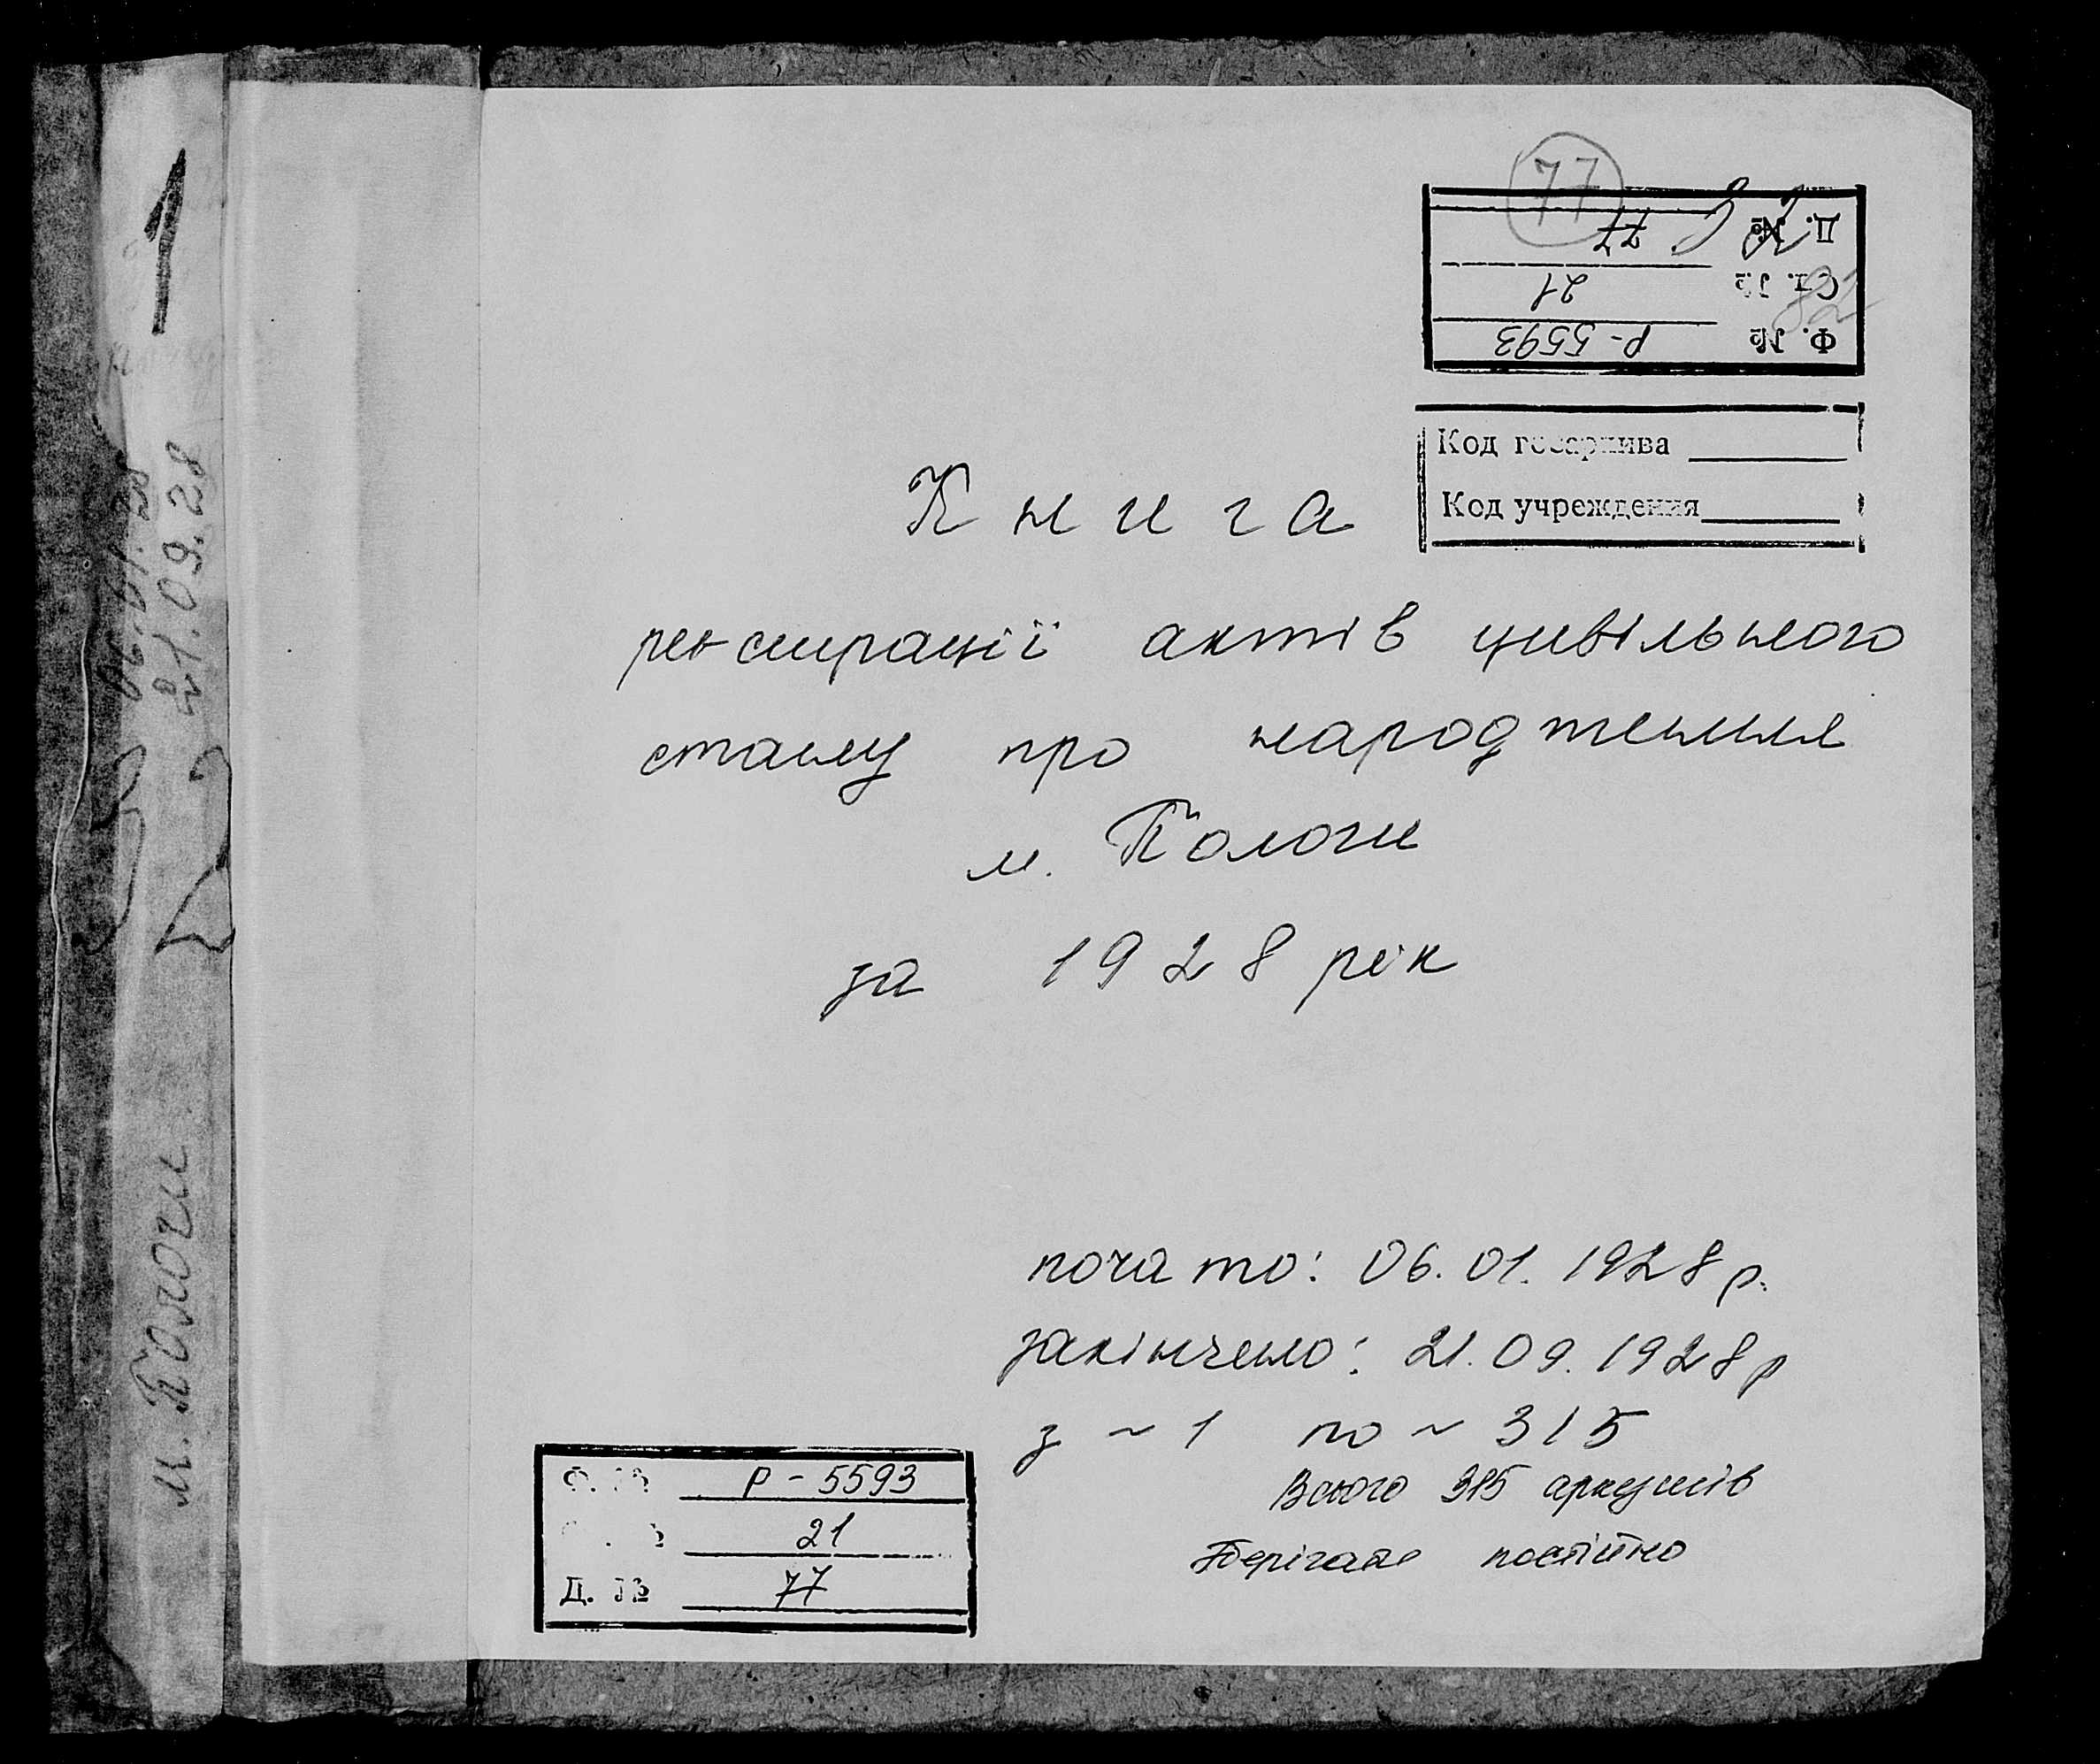 1
06.01.28
21.09.28
м. Пологи
77
Д. № 77
Ст. № 21
Ф. № Р-5593
82
Код госархива
Код учреждения
Книга
реєстрації актів цивільного
стану про народження
м. Пологи
за 1928 рік
почато: 06.01.1928 р.
закінчено: 21.09.1928 р
з ~ 1 по ~ 315
Всього 315 аркушів
Зберігати постійно
Ф. № Р-5593
21
Д. № 77